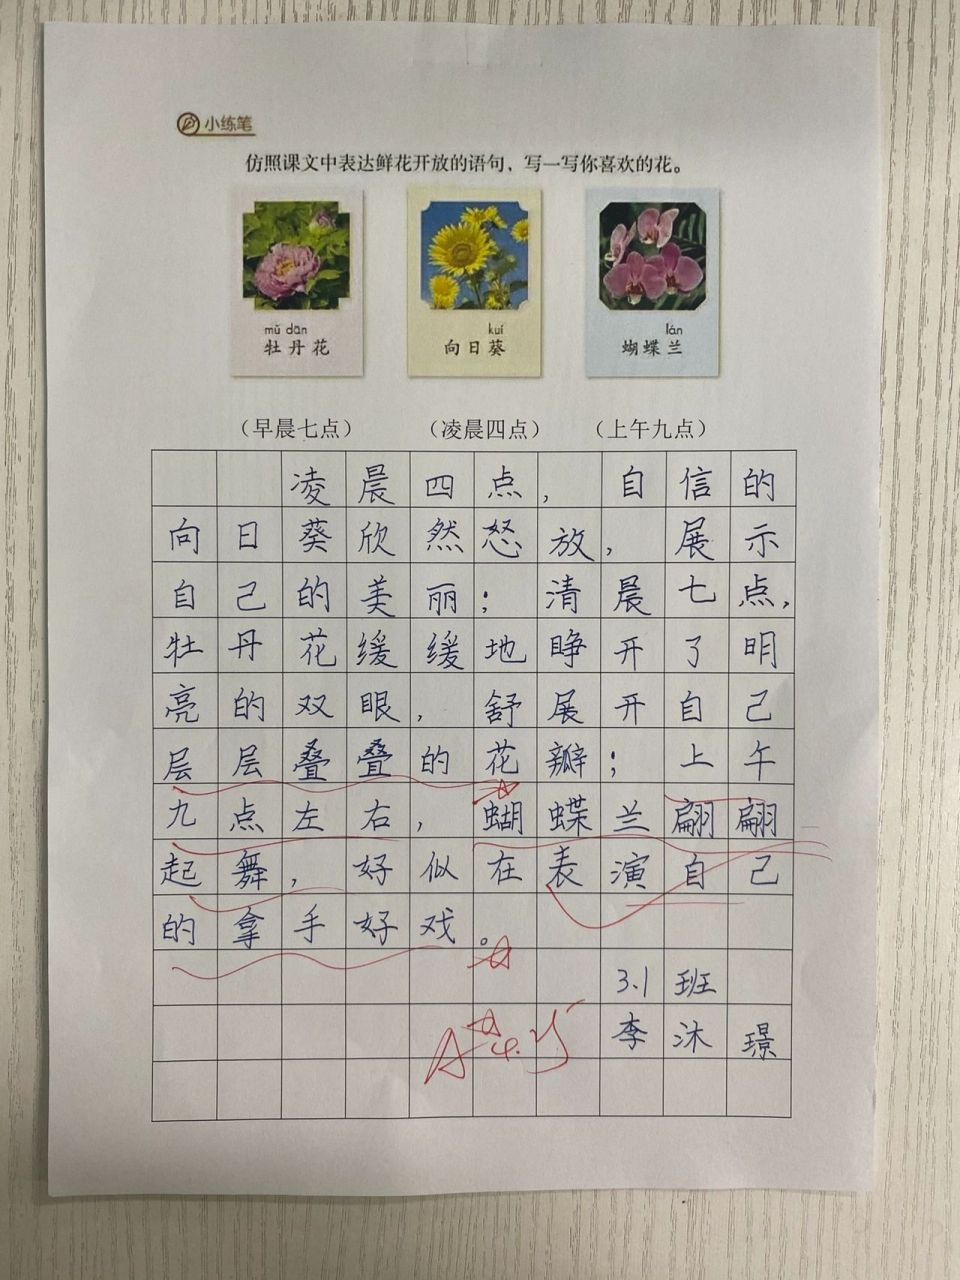 小练笔
仿照课文中表达鲜花开放的语句，写一写你喜欢的花。
mǔ dān
牡丹花
kuí
向日葵
lán
蝴蝶兰
（早晨七点）
（凌晨四点）
（上午九点）
凌晨四点，自信的
向日葵欣然怒放，展示
自己的美丽；清晨七点，
牡丹花缓缓地睁开了明
亮的双眼，舒展开自己
层层叠叠的花瓣；上午
九点左右，蝴蝶兰翩翩
起舞，好似在表演自己
的拿手好戏。
3.1班
李沐璟